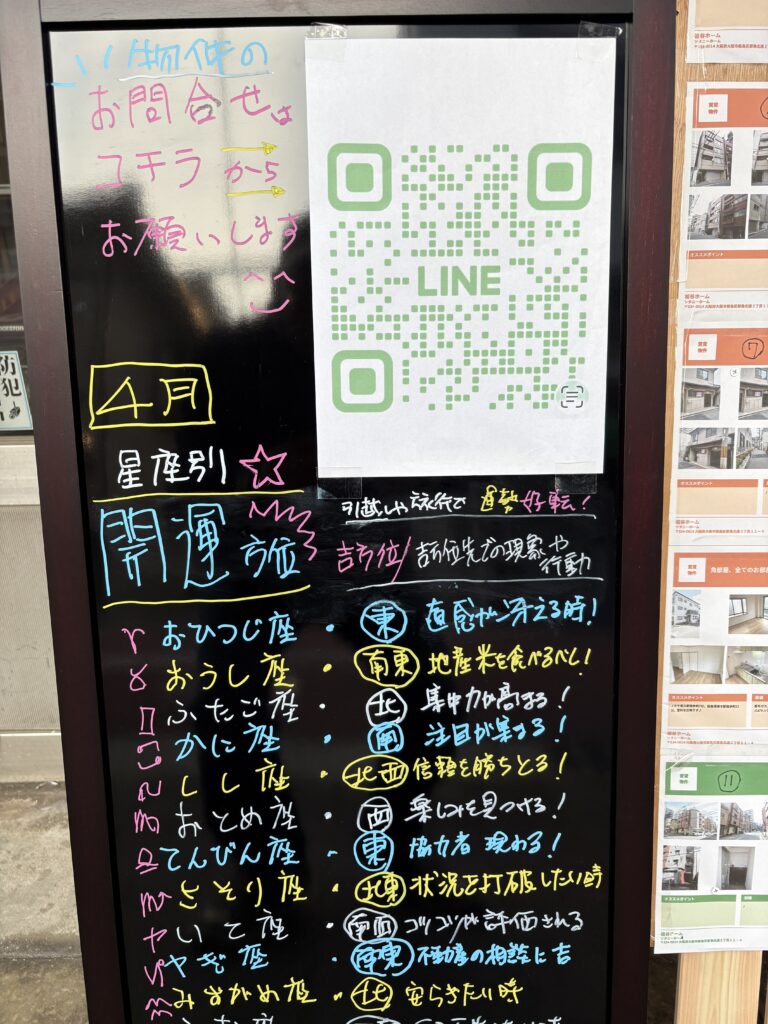 い物件の
お問合せは
コチラから
お願いします
LINE
4月
星座別
開運方位
引越しや旅行で運勢好転!
吉方位/吉方位先での現象や行動
♈ おひつじ座・東 直感が冴える時!
♉ おうし座・南東 地産米を食べるべし!
♊ ふたご座・北 集中力が高まる!
♋ かに座・南 注目が集まる!
♌ しし座・北西 信頼を勝ちとる!
♍ おとめ座・西 楽しみを見つける!
♎ てんびん座・東 協力者 現わる!
♏ さそり座・北東 状況を打破したい時
♐ いて座・南西 コツコツが評価される
♑ やぎ座・南東 不動産の相談に吉
♒ みずがめ座・北 安らぎたい時
防犯
賃貸物件
オススメポイント
賃貸物件 7
オススメポイント
賃貸物件
角部屋、全てのお部
オススメポイント
賃貸物件 11
オススメポイント